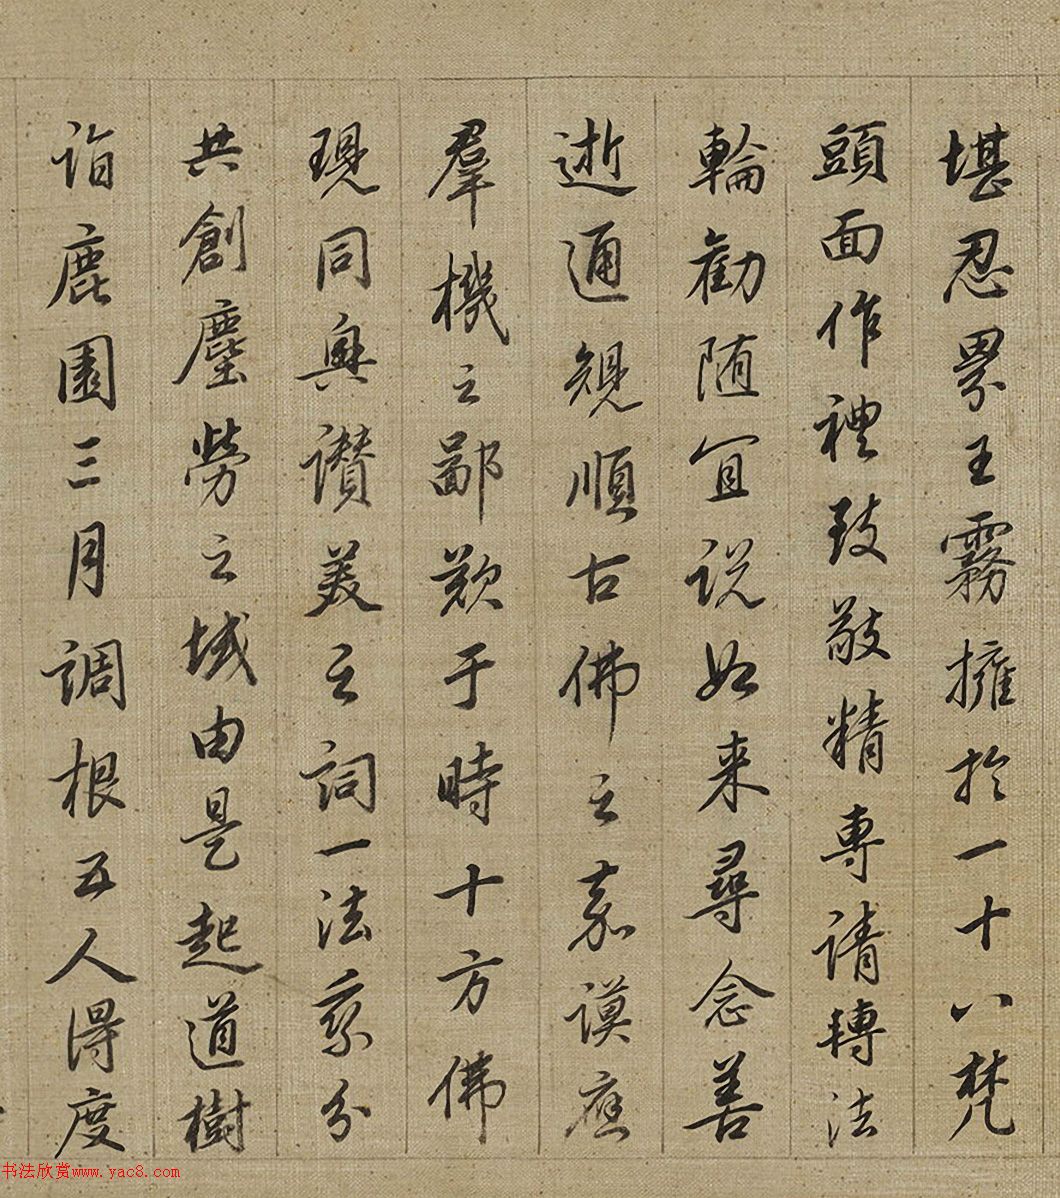 堪忍界主霧擁於一十八梵
頭面作禮致敬精專請轉法
輪勸随宜説如来尋念善
逝通規順古佛之嘉謨應
羣機之鄙欵于時十方佛
現同興讃美之詞一法系分
共創塵勞之域由是起道樹
詣鹿園三月調根五人得度
书法欣赏www.yac8.com